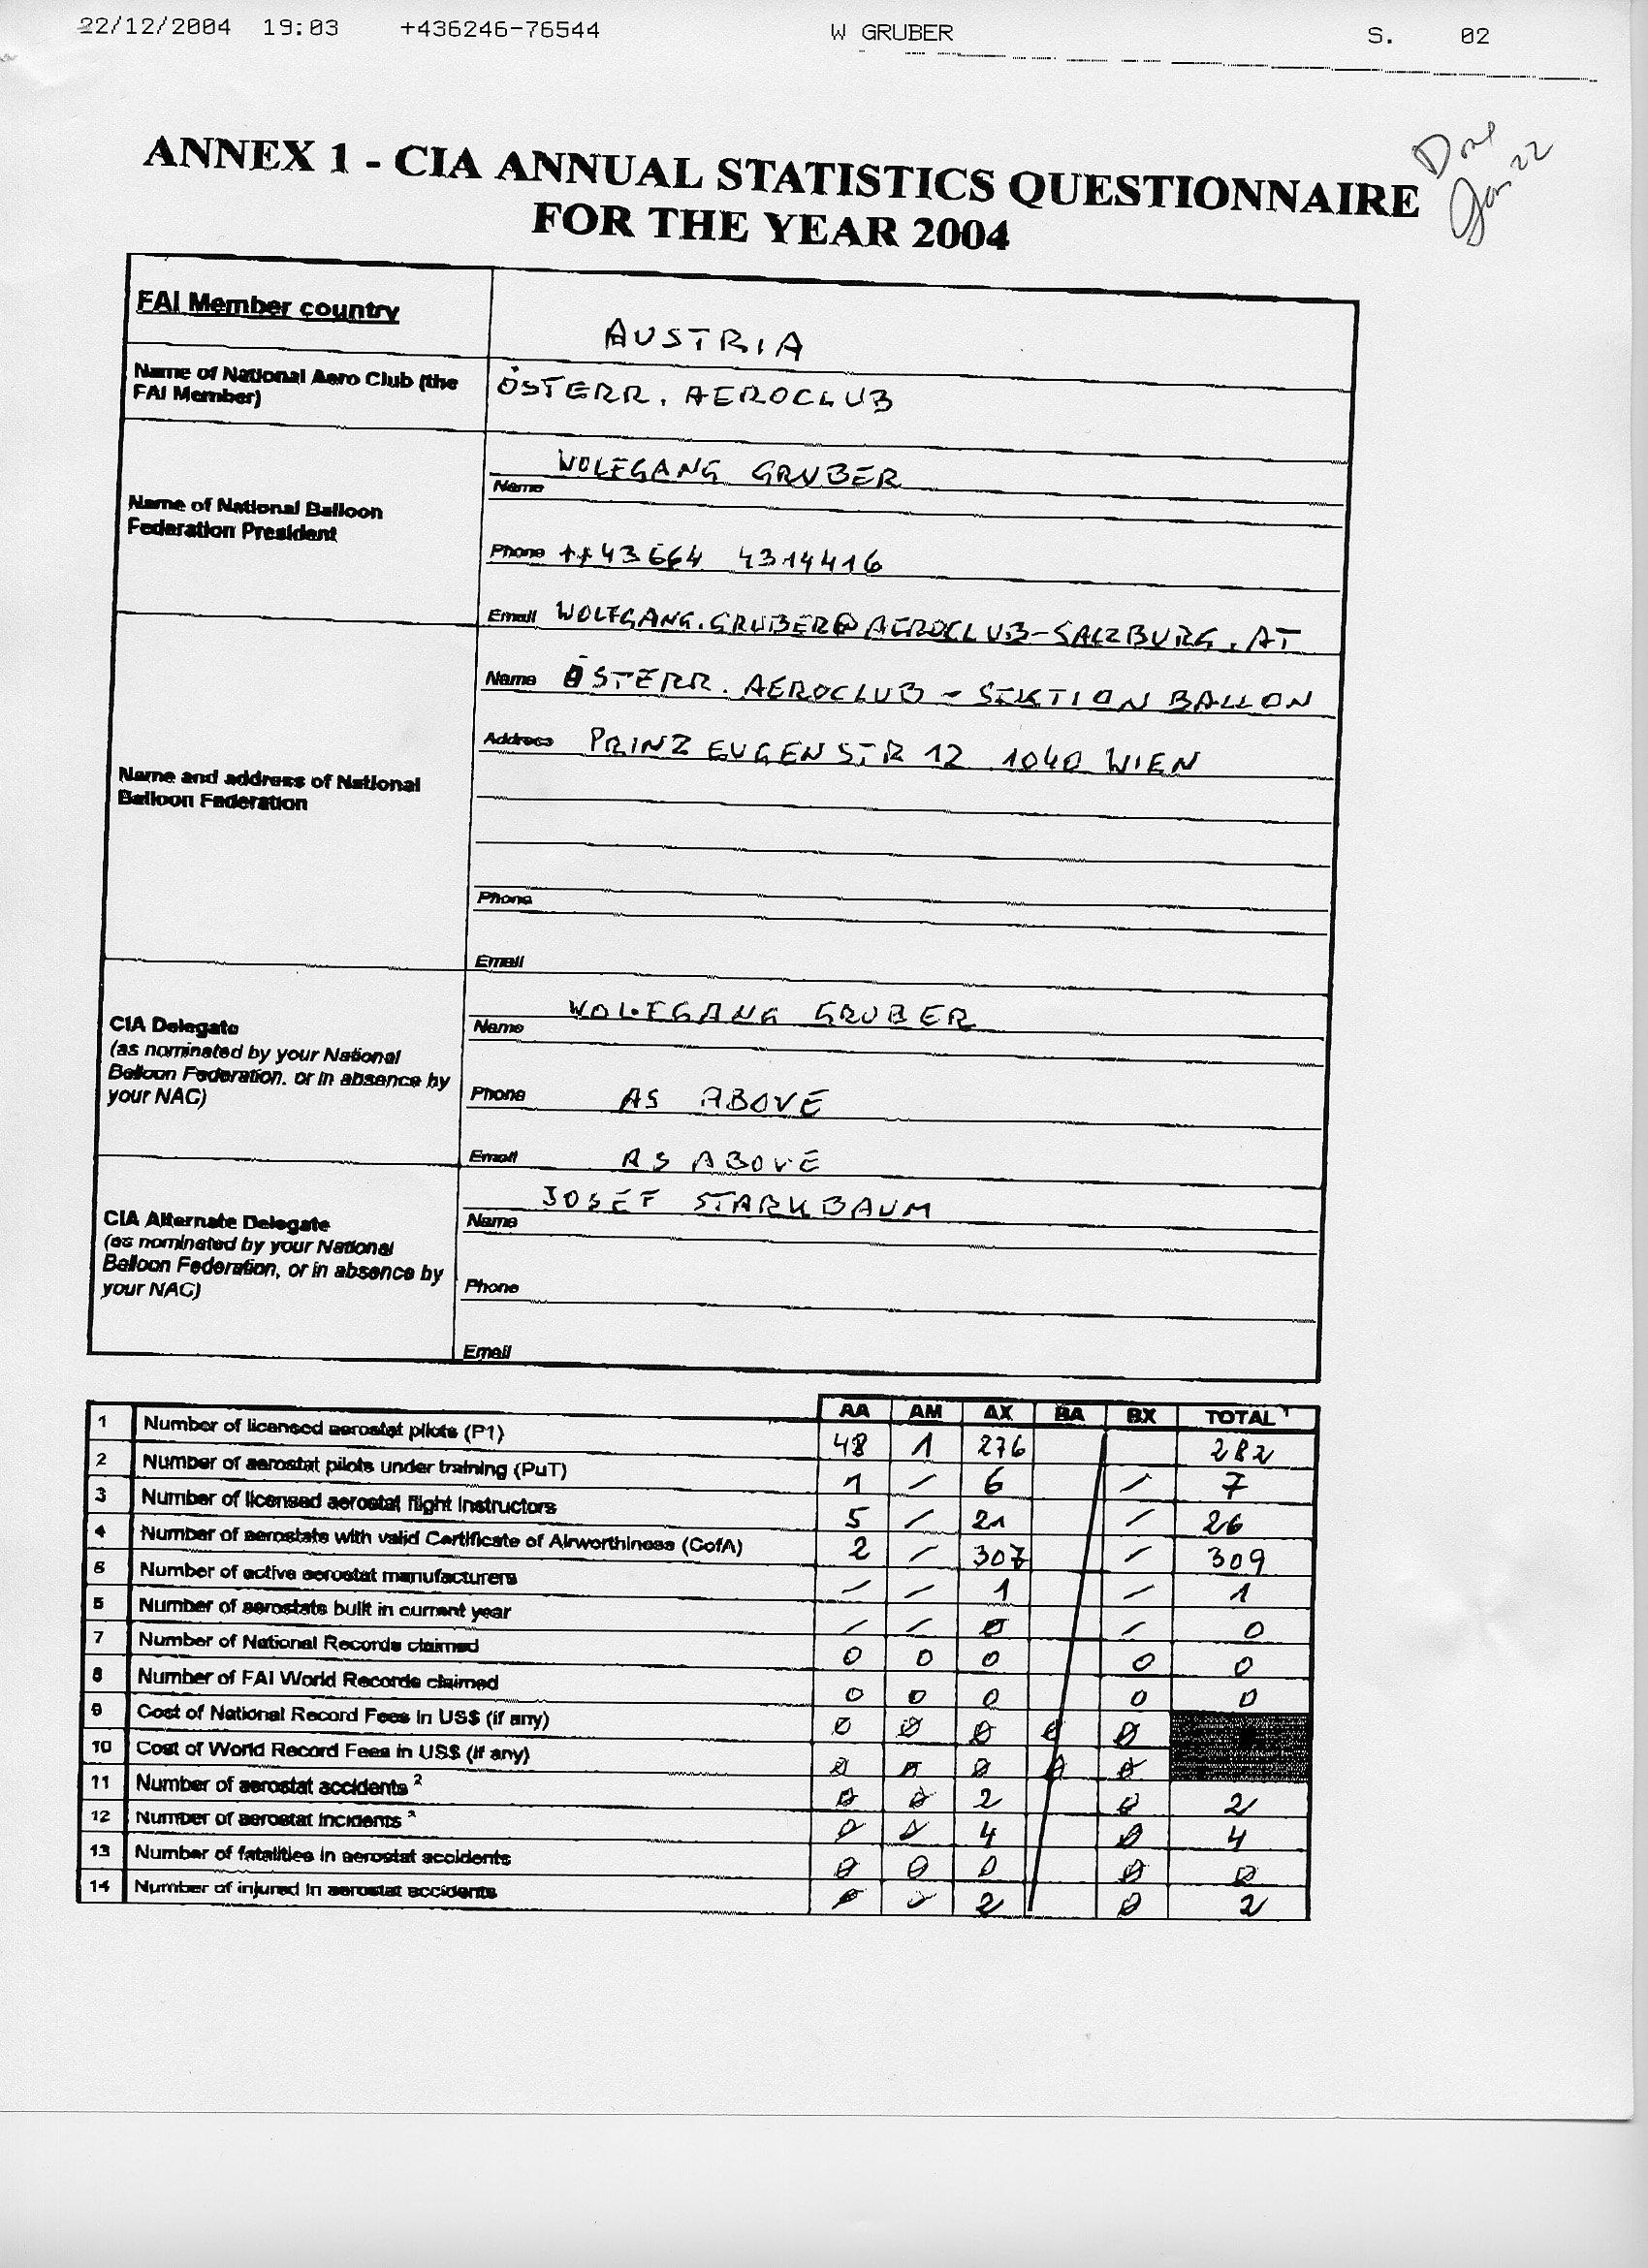 22/12/2004 19:03 +436246-76544 W GRUBER S. 02
Done
Jan 22
ANNEX 1 - CIA ANNUAL STATISTICS QUESTIONNAIRE
FOR THE YEAR 2004
FAI Member country AUSTRIA
Name of National Aero Club (the
FAI Member) ÖSTERR. AEROCLUB
Name WOLFGANG GRUBER
Name of National Balloon
Federation President
Phone ++43 664 4314416
Email WOLFGANG.GRUBER@AEROCLUB-SALZBURG.AT
Name ÖSTERR. AEROCLUB - SEKTION BALLON
Address PRINZ EUGENSTR 12 1040 WIEN
Name and address of National
Balloon Federation
Phone
Email
Name WOLFGANG GRUBER
CIA Delegate
(as nominated by your National
Balloon Federation, or in absence by
your NAC)
Phone AS ABOVE
Email AS ABOVE
Name JOSEF STARKBAUM
CIA Alternate Delegate
(as nominated by your National
Balloon Federation, or in absence by
your NAC)
Phone
Email
AA AM AX BA BX TOTAL 1
1 Number of licensed aerostat pilots (P1) 48 1 276 282
2 Number of aerostat pilots under training (PuT) 1 / 6 / 7
3 Number of licensed aerostat flight instructors 5 / 21 / 26
4 Number of aerostats with valid Certificate of Airworthiness (CofA) 2 / 307 / 309
6 Number of active aerostat manufacturers / / 1 / 1
5 Number of aerostats built in current year / / 0 / 0
7 Number of National Records claimed 0 0 0 0 0
8 Number of FAI World Records claimed 0 0 0 0 0
9 Cost of National Record Fees in US$ (if any) 0 0 0 0 0
10 Cost of World Record Fees in US$ (if any) 0 0 0 0 0
11 Number of aerostat accidents 2 0 0 2 0 2
12 Number of aerostat incidents 0 0 4 0 4
13 Number of fatalities in aerostat accidents 0 0 0 0 0
14 Number of injured in aerostat accidents 0 2 0 2